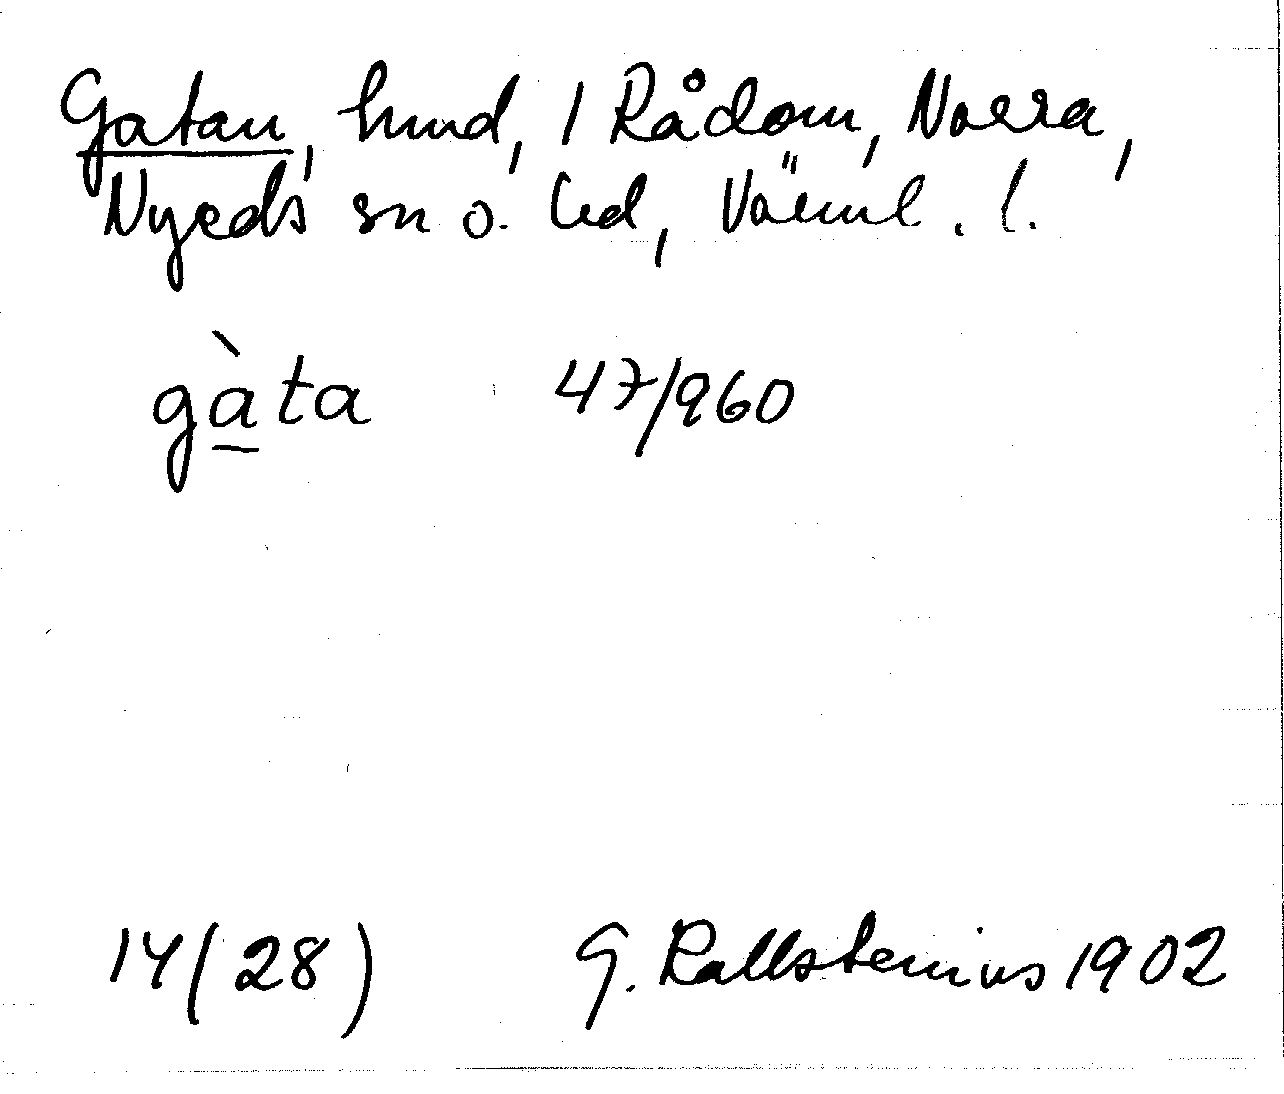 Gatan, hmd, / Rådom, Norra,
Nyeds sn o. hd, Värml. l.
gàta 47/960
14(28) G. Kallstenius 1902